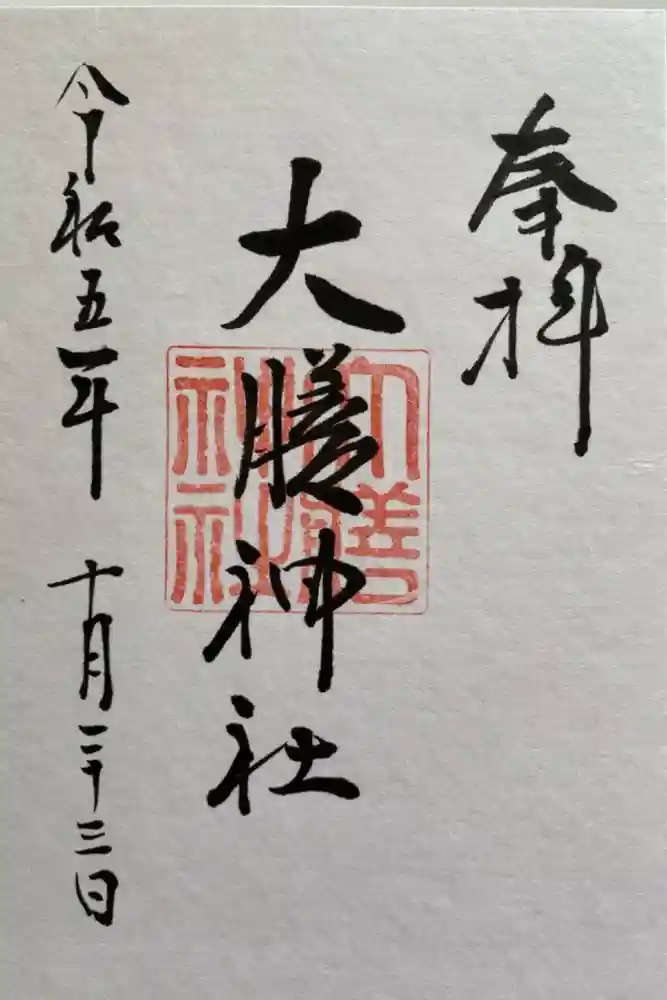 奉拝
大膳神社
大膳神社
令和五年 十月二十三日